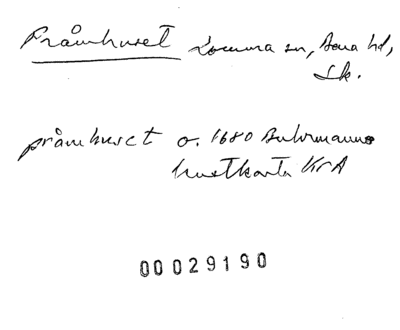 Pråmhuset Lomma sn, Bara hd,
Sk.
pråmhuset o. 1680 Buhrmanns
kustkarta KrA
00029190